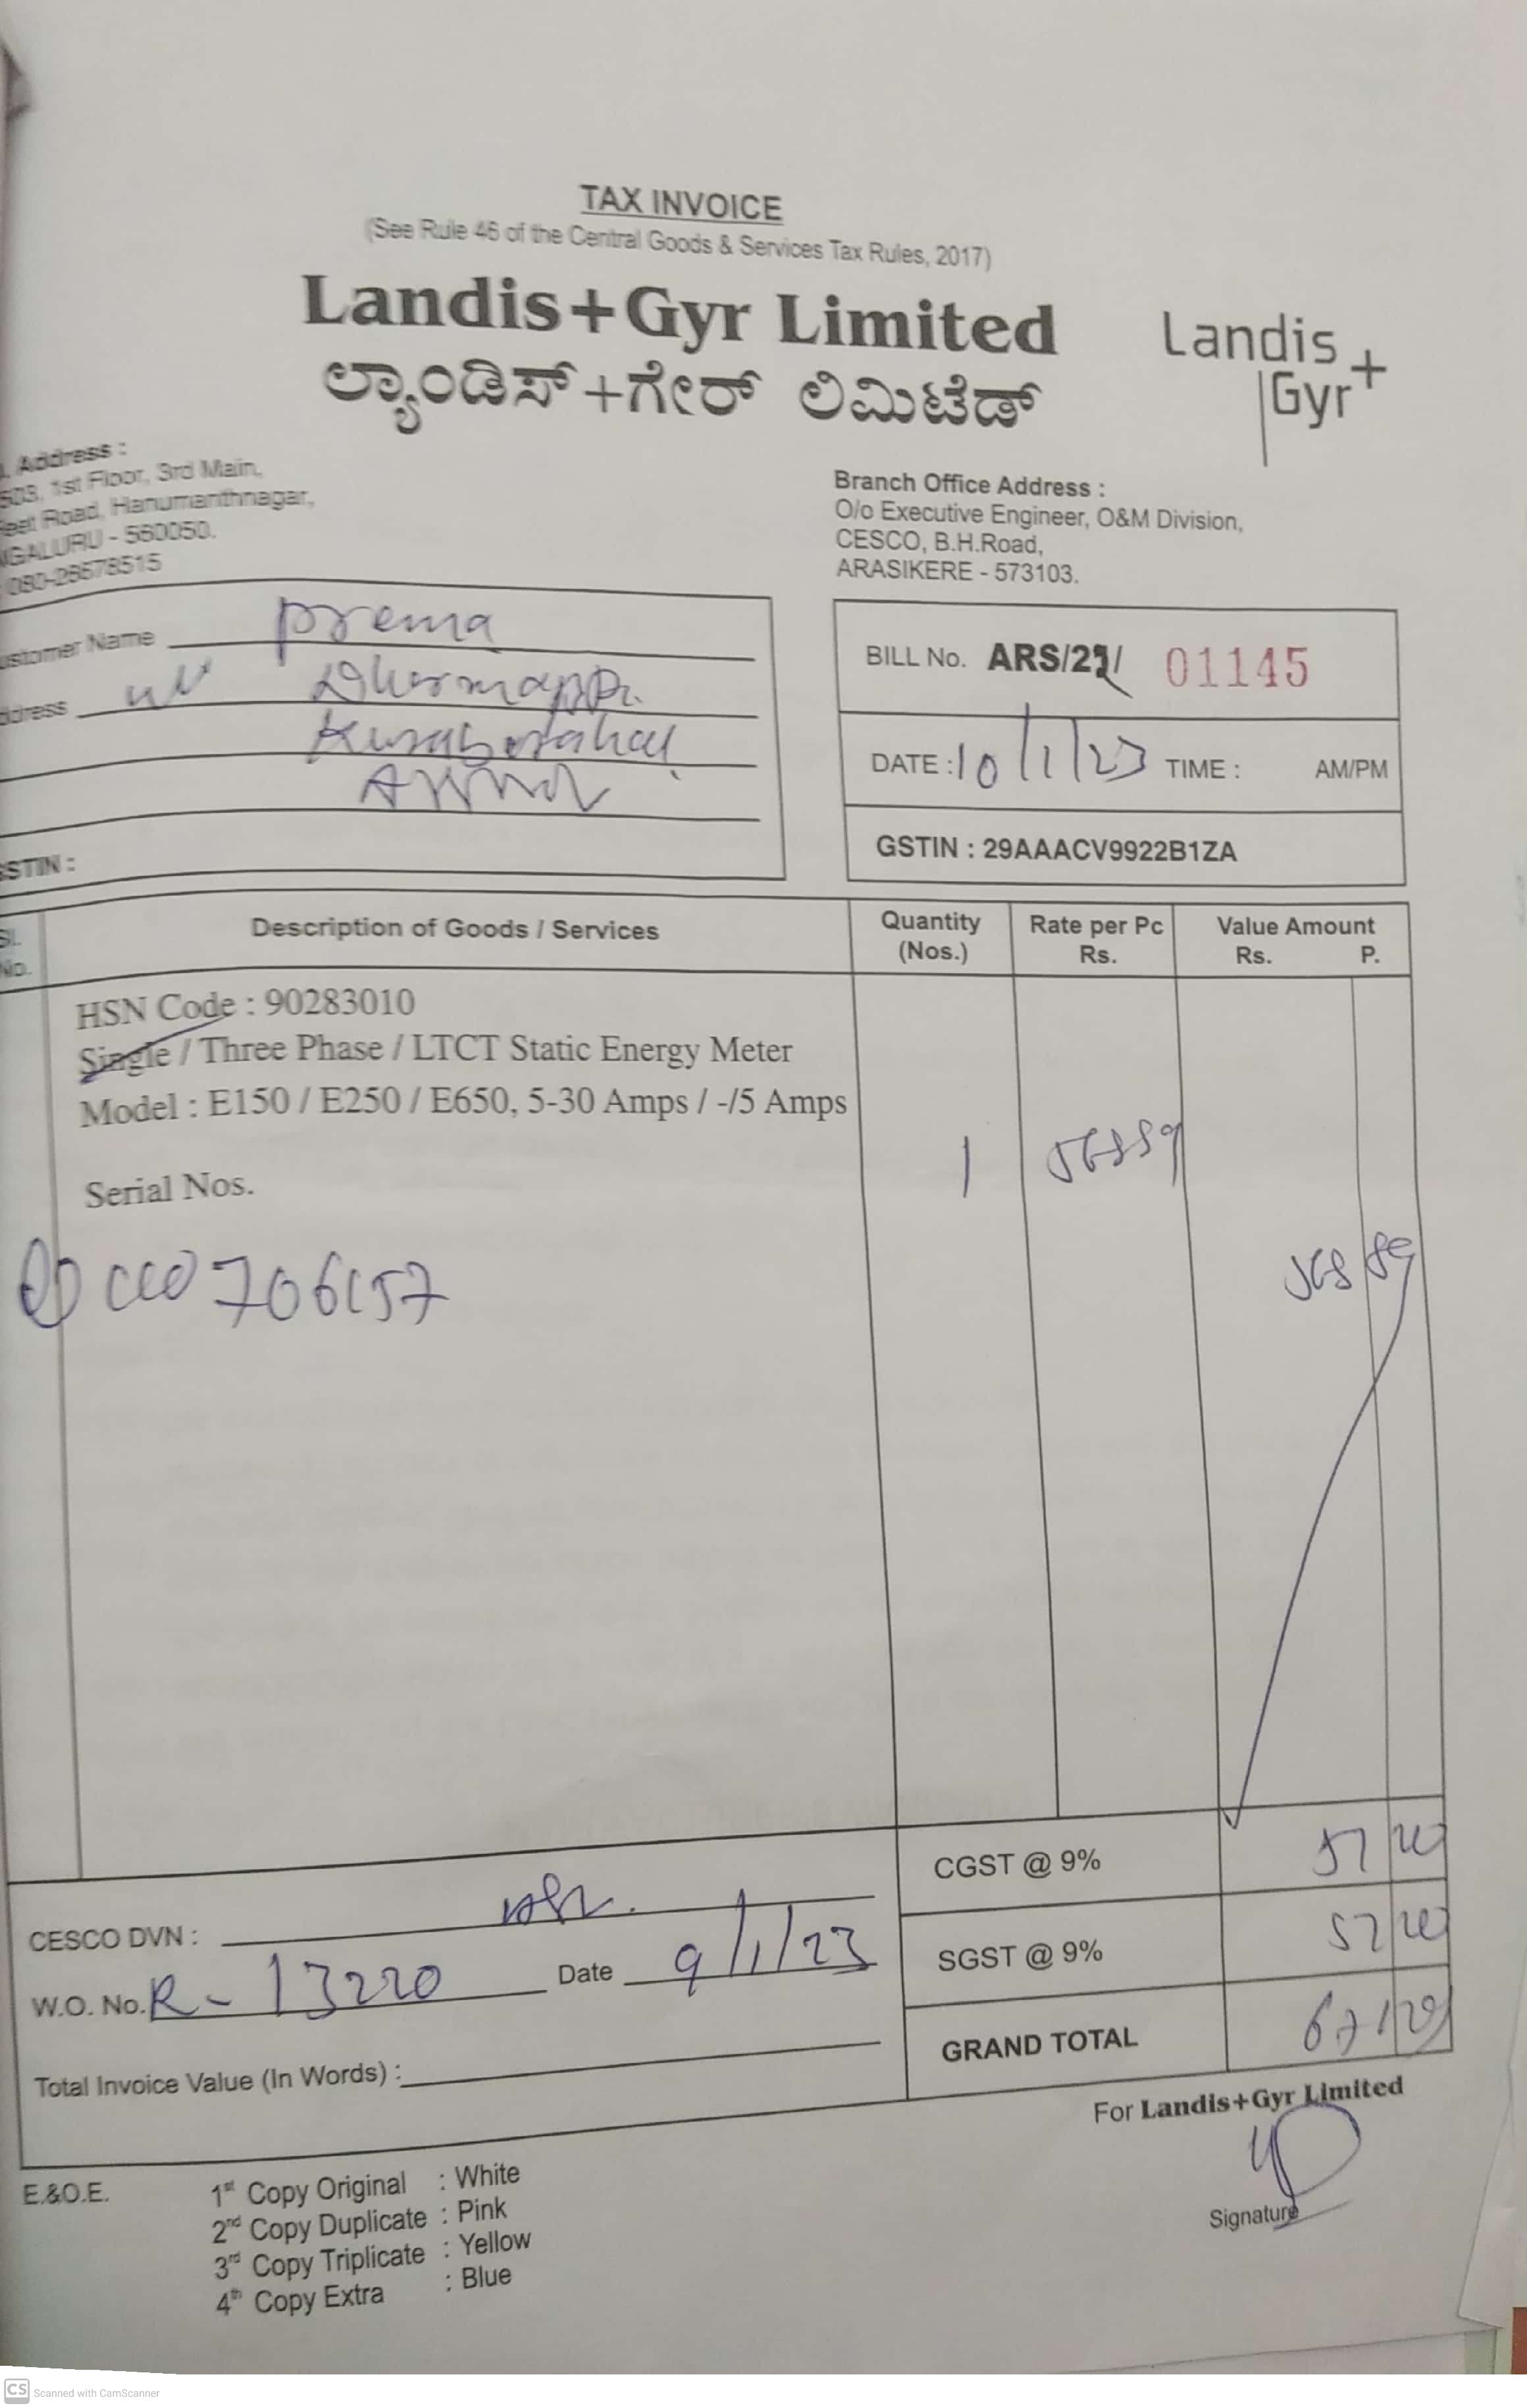 TAX INVOICE
(See Rule 46 of the Central Goods & Services Tax Rules, 2017)
Landis+Gyr Limited
ಲ್ಯಾಂಡಿಸ್+ಗೇರ್ ಲಿಮಿಟೆಡ್
Landis
Gyr+
. Address :
503, 1st Floor, 3rd Main,
Feet Road, Hanumanthnagar,
NGALURU - 560050.
: 080-26678515
Branch Office Address :
O/o Executive Engineer, O&M Division,
CESCO, B.H.Road,
ARASIKERE - 573103.
ustomer Name prema
ddress
GSTIN :
BILL No. ARS/ 01145
DATE : 10/1/23 TIME : AM/PM
GSTIN : 29AAACV9922B1ZA
Sl. No. Description of Goods / Services Quantity (Nos.) Rate per Pc Rs. Value Amount Rs. P.
HSN Code : 90283010
Single / Three Phase / LTCT Static Energy Meter
Model : E150 / E250 / E650, 5-30 Amps / -/5 Amps
1
Serial Nos.
CGST @ 9% 57
SGST @ 9% 57
GRAND TOTAL 671
CESCO DVN :
W.O. No. R - 13220 Date 9/1/23
Total Invoice Value (In Words) :
For Landis+Gyr Limited
Signature
E.&O.E.
1st Copy Original : White
2nd Copy Duplicate : Pink
3rd Copy Triplicate : Yellow
4th Copy Extra : Blue
CS Scanned with CamScanner